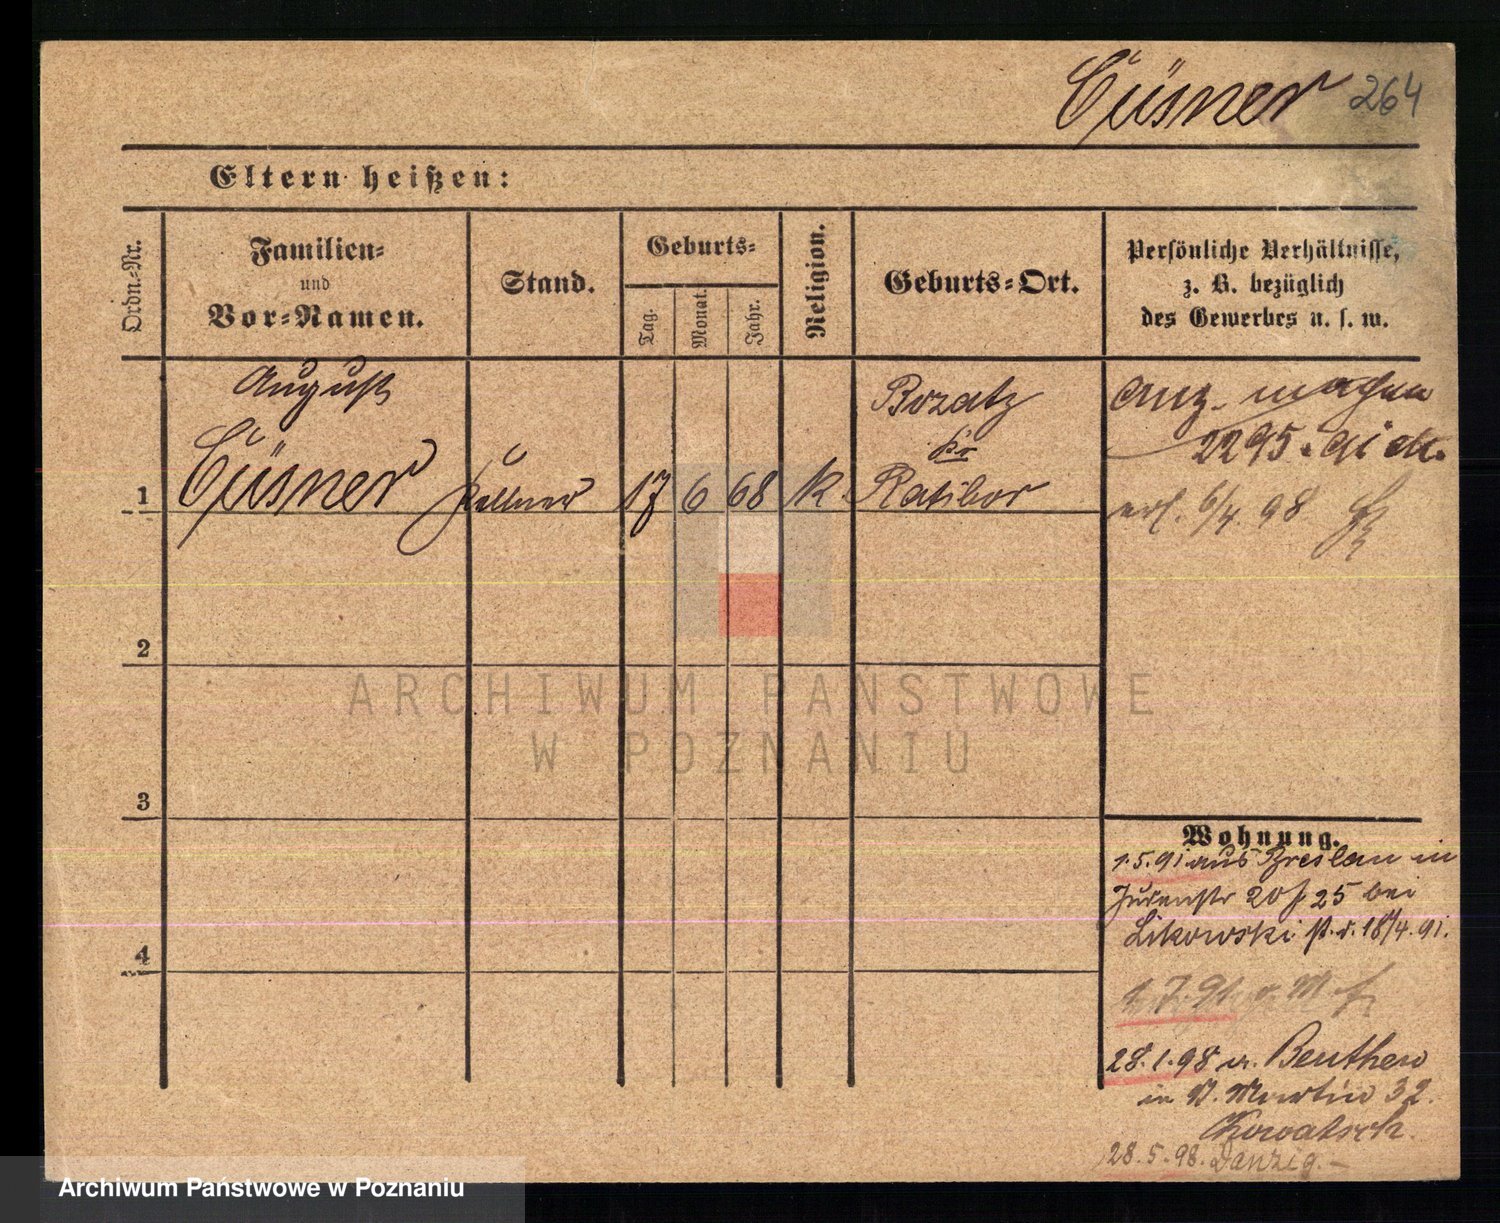 Cüsner 264
Eltern heißen:
Ordn.-Nr.
Familien-
und
Vor-Namen.
Stand.
Geburts-
Tag.
Monat.
Jahr.
Religion.
Geburts-Ort.
Persönliche Verhältnisse,
z. B. bezüglich
des Gewerbes u. s. w.
August
Cüsner
1
Kellner
17 6 68 K.
Bozatz
kr
Ratibor
2295. 91
erl. 6/4. 98
2
3
4
Wohnung.
1.5.91 aus Breslau in
20 25 bei
Likowski 18/4.91.
1.7.91
28.1.98 v. Beuthen
in St. Martin 32.
Kowatsch.
28.5.98. Danzig.-
ARCHIWUM PAŃSTWOWE
W POZNANIU
Archiwum Państwowe w Poznaniu